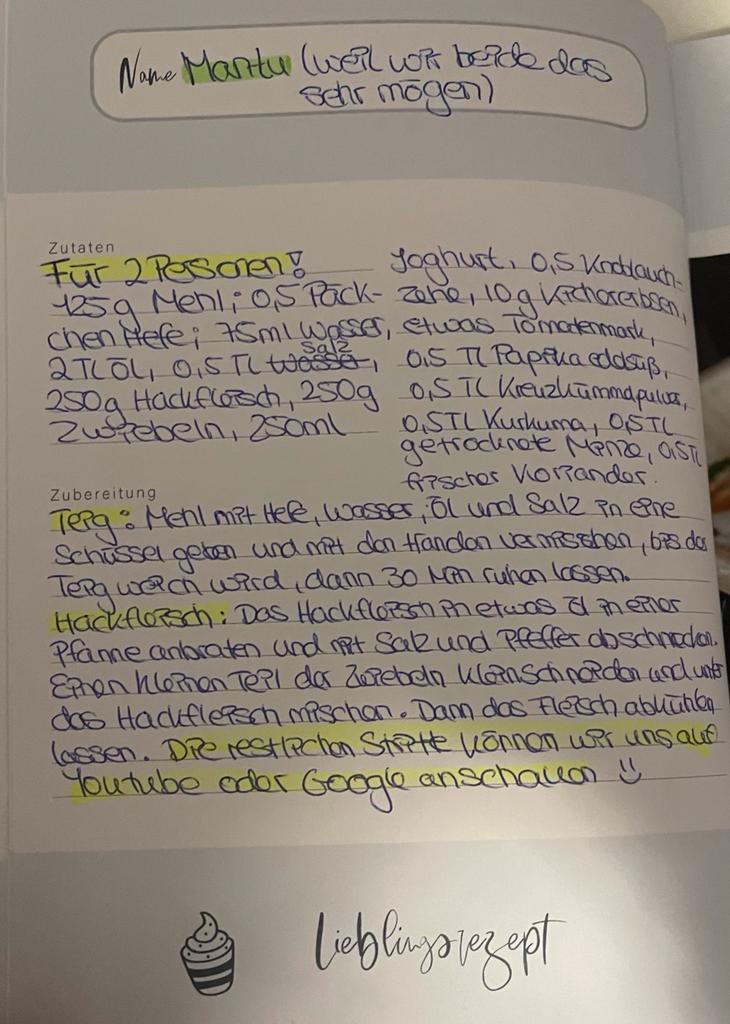 Name Mantu (weil wir beide das
sehr mögen)
Zutaten
Für 2 Personen!
125g Mehl; 0,5 Päck-
chen Hefe; 75ml Wasser,
2 TL Öl, 0,5 TL Salz,
250g Hackfleisch, 250g
Zwiebeln, 250ml
Joghurt, 0,5 Knoblauch-
zehe, 10g Kichererbsen,
etwas Tomatenmark,
0,5 TL Paprika edelsüß,
0,5 TL Kreuzkümmelpulver,
0,5TL Kurkuma, 0,5TL
getrocknete Minze, 0,5TL
frischer Koriander.
Zubereitung
Teig: Mehl mit Hefe, Wasser, Öl und Salz in eine
Schüssel geben und mit den Händen vermischen, bis der
Teig weich wird, dann 30 Min ruhen lassen.
Hackfleisch: Das Hackfleisch in etwas Öl in einer
Pfanne anbraten und mit Salz und Pfeffer abschmecken.
Einen kleinen Teil der Zwiebeln kleinschneiden und unter
das Hackfleisch mischen. Dann das Fleisch abkühlen
lassen. Die restlichen Stritte können wir uns auf
Youtube oder Google anschauen
Lieblingsrezept